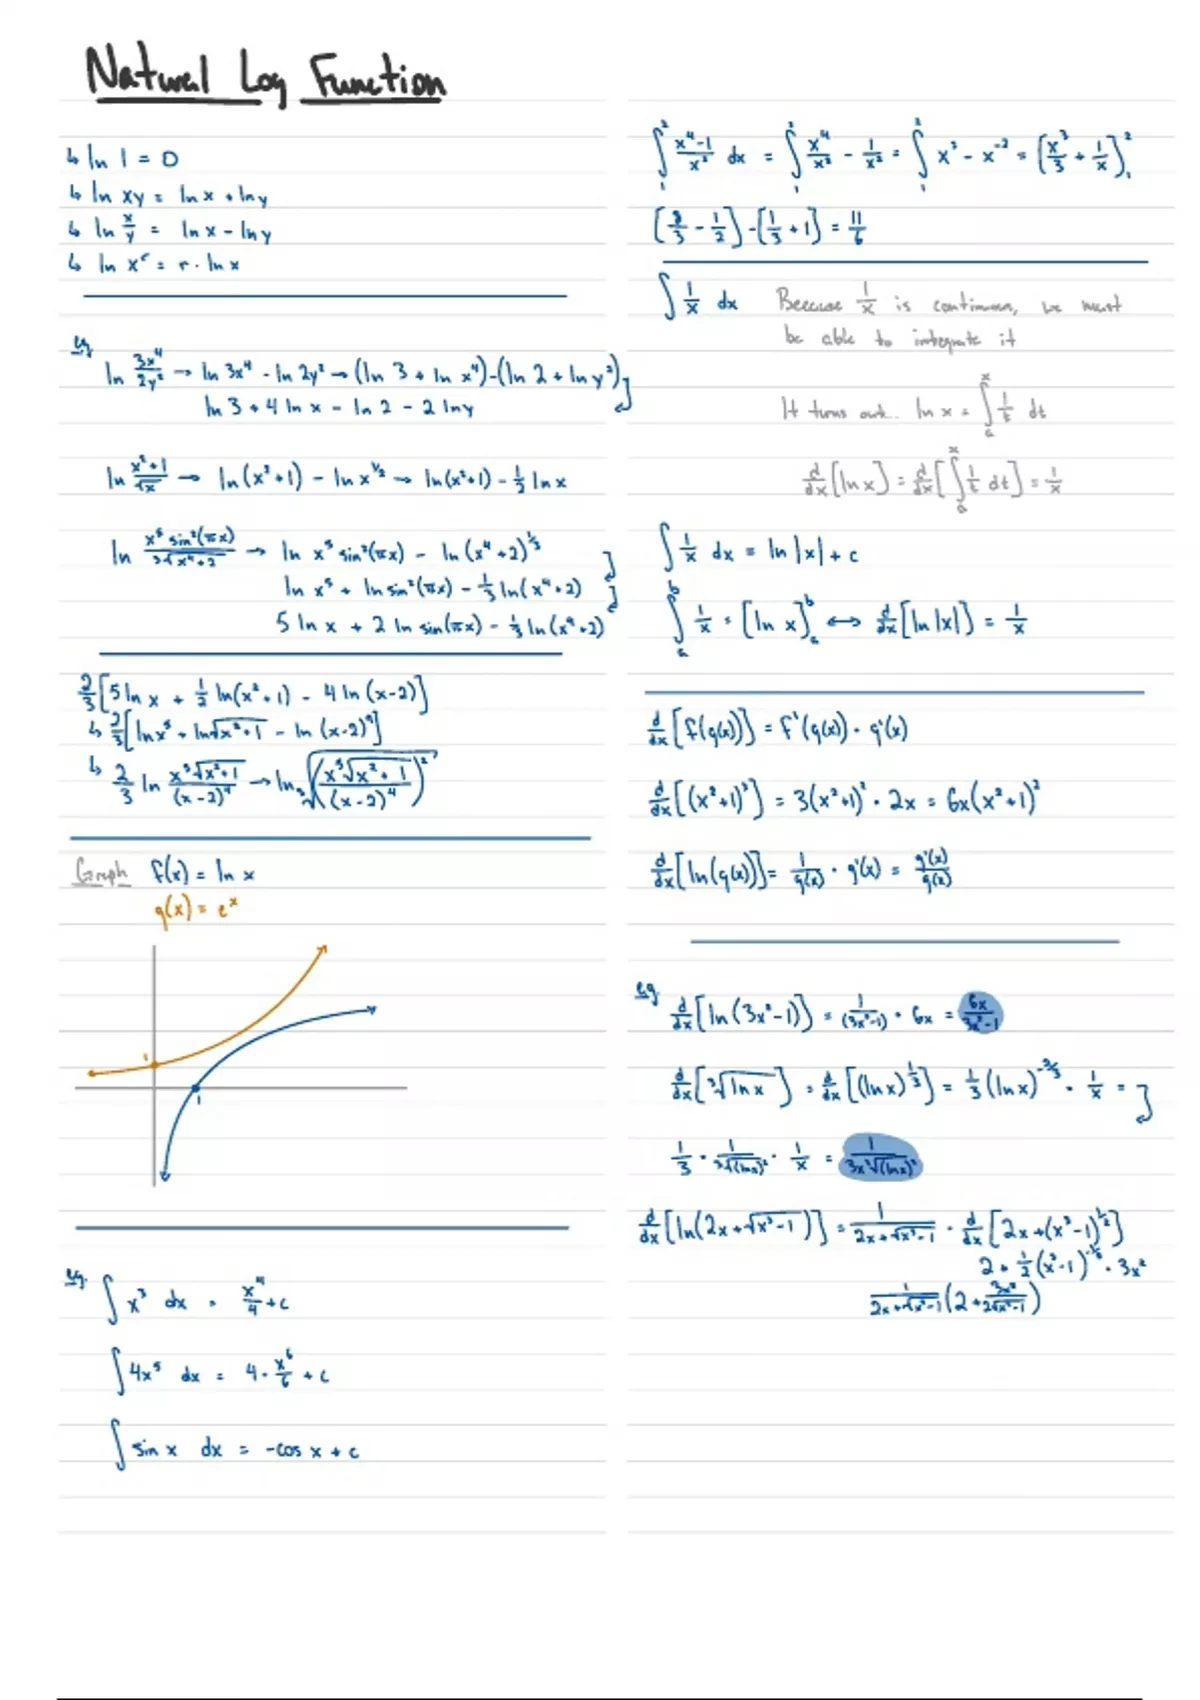 Natural Log Function
↳ ln 1 = 0
↳ ln xy = ln x + ln y
↳ ln x/y = ln x - ln y
↳ ln xʳ = r · ln x
eg
ln 3x⁴/2y² → ln 3x⁴ - ln 2y² → (ln 3 + ln x⁴) - (ln 2 + ln y²)
ln 3 + 4 ln x - ln 2 - 2 ln y
ln (x²+1)/√x → ln(x²+1) - ln x^(1/2) → ln(x²+1) - 1/2 ln x
ln x⁵ sin²(πx)/∛(x⁴+2) → ln x⁵ sin²(πx) - ln(x⁴+2)^(1/3)
ln x⁵ + ln sin²(πx) - 1/3 ln(x⁴+2)
5 ln x + 2 ln sin(πx) - 1/3 ln(x⁴+2)
2/3 [5 ln x + 1/2 ln(x²+1) - 4 ln(x-2)]
↳ 2/3 [ln x⁵ + ln√(x²+1) - ln(x-2)⁴]
↳ 2/3 ln x⁵√(x²+1)/(x-2)⁴ → ln ∛(x⁵√(x²+1)/(x-2)⁴)²
Graph f(x) = ln x
g(x) = eˣ
1
1
eg.
∫ x³ dx = x⁴/4 + c
∫ 4x⁵ dx = 4 · x⁶/6 + c
∫ sin x dx = -cos x + c
∫₁² (x⁴-1)/x² dx = ∫₁² x⁴/x² - 1/x² = ∫₁² x² - x⁻² = [x³/3 + 1/x]₁²
[8/3 - 1/2] - [1/3 + 1] = 11/6
∫ 1/x dx Because 1/x is continuous, we must
be able to integrate it
It turns out... ln x = ∫ₐˣ 1/t dt
d/dx [ln x] = d/dx [∫ₐˣ 1/t dt] = 1/x
∫ 1/x dx = ln |x| + c
∫ₐᵇ 1/x = [ln x]ₐᵇ ↔ d/dx [ln|x|] = 1/x
d/dx [f(g(x))] = f'(g(x)) · g'(x)
d/dx [(x²+1)³] = 3(x²+1)² · 2x = 6x(x²+1)²
d/dx [ln(g(x))] = 1/g(x) · g'(x) = g'(x)/g(x)
eg.
d/dx [ln(3x²-1)] = 1/(3x²-1) · 6x = 6x/3x²-1
d/dx [∛ln x] = d/dx [(ln x)^(1/3)] = 1/3 (ln x)^(-2/3) · 1/x =
1/3 · 1/∛(ln x)² · 1/x = 1/3x∛(ln x)²
d/dx [ln(2x+√(x³-1))] = 1/(2x+√(x³-1)) · d/dx [2x+(x³-1)^(1/2)]
2 + 1/2 (x³-1)^(-1/2) · 3x²
1/(2x+√(x³-1)) (2 + 3x²/2√(x³-1))